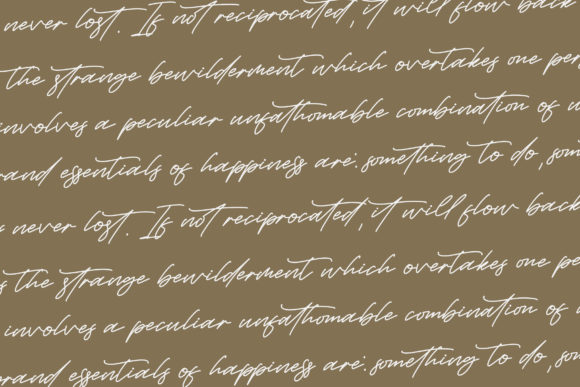 never lost. If not reciprocated, it will flow back
the strange bewilderment which overtakes one per
involves a peculiar unfathomable combination of u
rand essentials of happiness are: something to do, som
never lost. If not reciprocated, it will flow back
s the strange bewilderment which overtakes one pe
involves a peculiar unfathomable combination of
brand essentials of happiness are: something to do, so